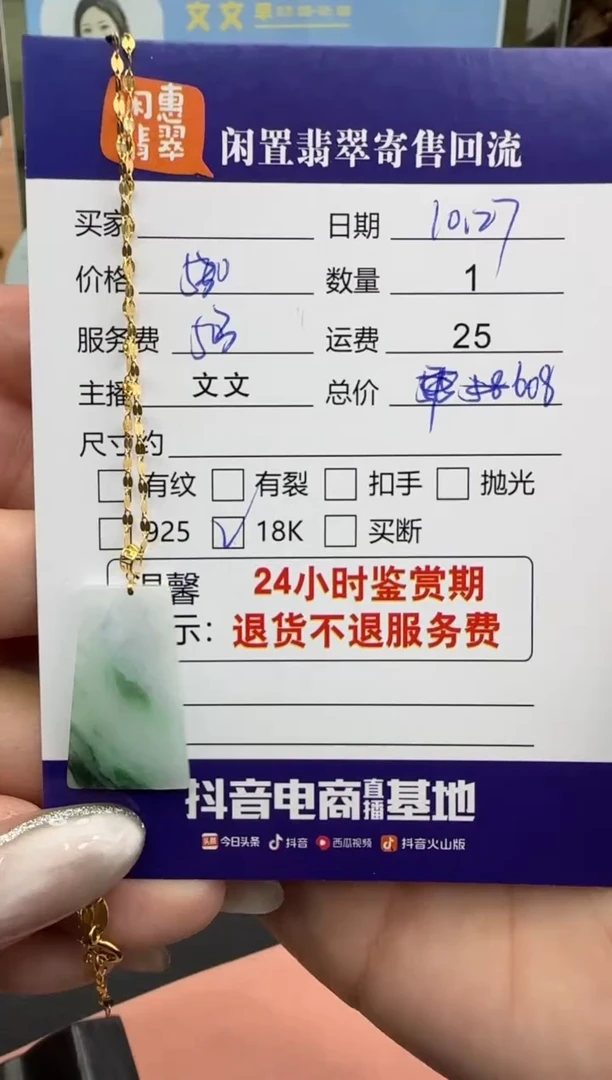 文文
闲惠
翡翠
闲置翡翠寄售回流
买家 日期 10.27
价格 530 数量 1
服务费 53 运费 25
主播 文文 总价 608
尺寸约
有纹 有裂 扣手 抛光
925 18K 买断
温馨 24小时鉴赏期
示: 退货不退服务费
抖音电商直播基地
头条 今日头条 抖音 西瓜视频 抖音火山版